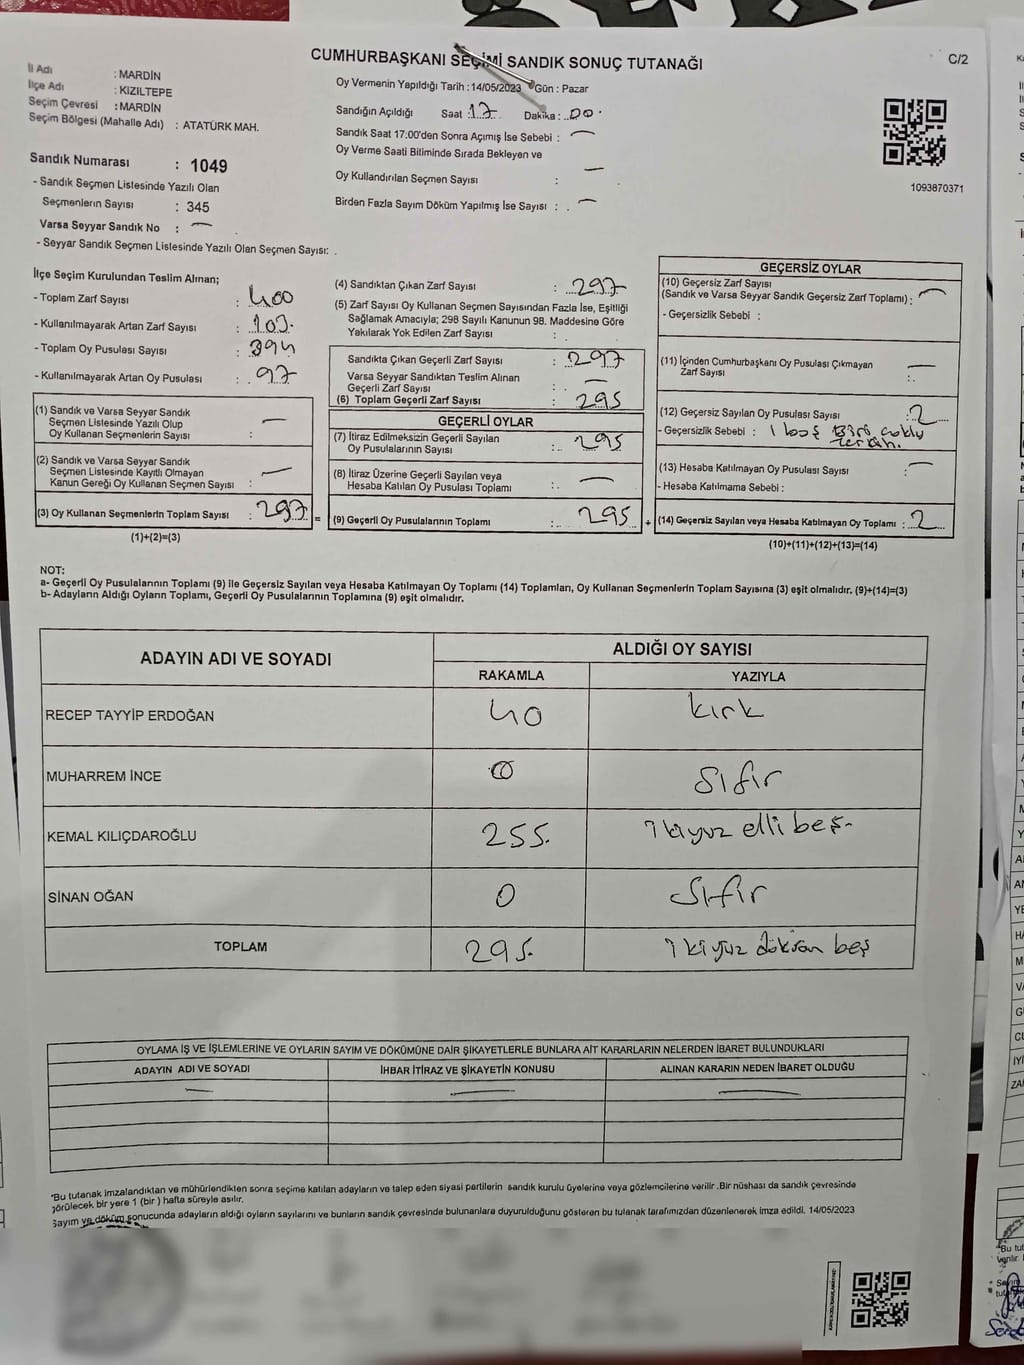 CUMHURBAŞKANI SEÇİMİ SANDIK SONUÇ TUTANAĞI
C/2
İl Adı : MARDİN
İlçe Adı : KIZILTEPE
Seçim Çevresi : MARDİN
Seçim Bölgesi (Mahalle Adı) : ATATÜRK MAH.
Sandık Numarası : 1049
- Sandık Seçmen Listesinde Yazılı Olan
Seçmenlerin Sayısı : 345
Varsa Seyyar Sandık No : —
- Seyyar Sandık Seçmen Listesinde Yazılı Olan Seçmen Sayısı: .
Oy Vermenin Yapıldığı Tarih : 14/05/2023 Gün : Pazar
Sandığın Açıldığı Saat : 17 Dakika : 00
Sandık Saat 17:00'den Sonra Açımış İse Sebebi : —
Oy Verme Saati Bitiminde Sırada Bekleyen ve
Oy Kullandırılan Seçmen Sayısı : —
Birden Fazla Sayım Döküm Yapılmış İse Sayısı : . —
1093870371
İlçe Seçim Kurulundan Teslim Alınan;
- Toplam Zarf Sayısı : 400
- Kullanılmayarak Artan Zarf Sayısı : 103.
- Toplam Oy Pusulası Sayısı : 394
- Kullanılmayarak Artan Oy Pusulası : 97
(1) Sandık ve Varsa Seyyar Sandık
Seçmen Listesinde Yazılı Olup
Oy Kullanan Seçmenlerin Sayısı : —
(2) Sandık ve Varsa Seyyar Sandık
Seçmen Listesinde Kayıtlı Olmayan
Kanun Gereği Oy Kullanan Seçmen Sayısı : —
(3) Oy Kullanan Seçmenlerin Toplam Sayısı : 297 =
(1)+(2)=(3)
(4) Sandıktan Çıkan Zarf Sayısı : 297
(5) Zarf Sayısı Oy Kullanan Seçmen Sayısından Fazla İse, Eşitliği
Sağlamak Amacıyla; 298 Sayılı Kanunun 98. Maddesine Göre
Yakılarak Yok Edilen Zarf Sayısı :
Sandıkta Çıkan Geçerli Zarf Sayısı : 297
Varsa Seyyar Sandıktan Teslim Alınan
Geçerli Zarf Sayısı : —
(6) Toplam Geçerli Zarf Sayısı : 295
GEÇERLİ OYLAR
(7) İtiraz Edilmeksizin Geçerli Sayılan
Oy Pusulalarının Sayısı : 295
(8) İtiraz Üzerine Geçerli Sayılan veya
Hesaba Katılan Oy Pusulası Toplamı : —
(9) Geçerli Oy Pusulalarının Toplamı : 295 +
GEÇERSİZ OYLAR
(10) Geçersiz Zarf Sayısı
(Sandık ve Varsa Seyyar Sandık Geçersiz Zarf Toplamı) : —
- Geçersizlik Sebebi :
(11) İçinden Cumhurbaşkanı Oy Pusulası Çıkmayan
Zarf Sayısı : —
(12) Geçersiz Sayılan Oy Pusulası Sayısı : 2
- Geçersizlik Sebebi : 1 boş Biri çoklu
tercih.
(13) Hesaba Katılmayan Oy Pusulası Sayısı : —
- Hesaba Katılmama Sebebi :
(14) Geçersiz Sayılan veya Hesaba Katılmayan Oy Toplamı : 2
(10)+(11)+(12)+(13)=(14)
NOT:
a- Geçerli Oy Pusulalarının Toplamı (9) ile Geçersiz Sayılan veya Hesaba Katılmayan Oy Toplamı (14) Toplamları, Oy Kullanan Seçmenlerin Toplam Sayısına (3) eşit olmalıdır. (9)+(14)=(3)
b- Adayların Aldığı Oyların Toplamı, Geçerli Oy Pusulalarının Toplamına (9) eşit olmalıdır.
ADAYIN ADI VE SOYADI
ALDIĞI OY SAYISI
RAKAMLA YAZIYLA
RECEP TAYYİP ERDOĞAN 40 kırk
MUHARREM İNCE 0 sıfır
KEMAL KILIÇDAROĞLU 255. ikiyüz elli beş-
SİNAN OĞAN 0 sıfır
TOPLAM 295. ikiyüz döksan beş
OYLAMA İŞ VE İŞLEMLERİNE VE OYLARIN SAYIM VE DÖKÜMÜNE DAİR ŞİKAYETLERLE BUNLARA AİT KARARLARIN NELERDEN İBARET BULUNDUKLARI
ADAYIN ADI VE SOYADI İHBAR İTİRAZ VE ŞİKAYETİN KONUSU ALINAN KARARIN NEDEN İBARET OLDUĞU
— — —
*Bu tutanak imzalandıktan ve mühürlendikten sonra seçime katılan adayların ve talep eden siyasi partilerin sandık kurulu üyelerine veya gözlemcilerine verilir. Bir nüshası da sandık çevresinde
görülecek bir yere 1 (bir ) hafta süreyle asılır.
Sayım ve döküm sonucunda adayların aldığı oyların sayılarını ve bunların sandık çevresinde bulunanlara duyurulduğunu gösteren bu tutanak tarafımızdan düzenlenerek imza edildi. 14/05/2023